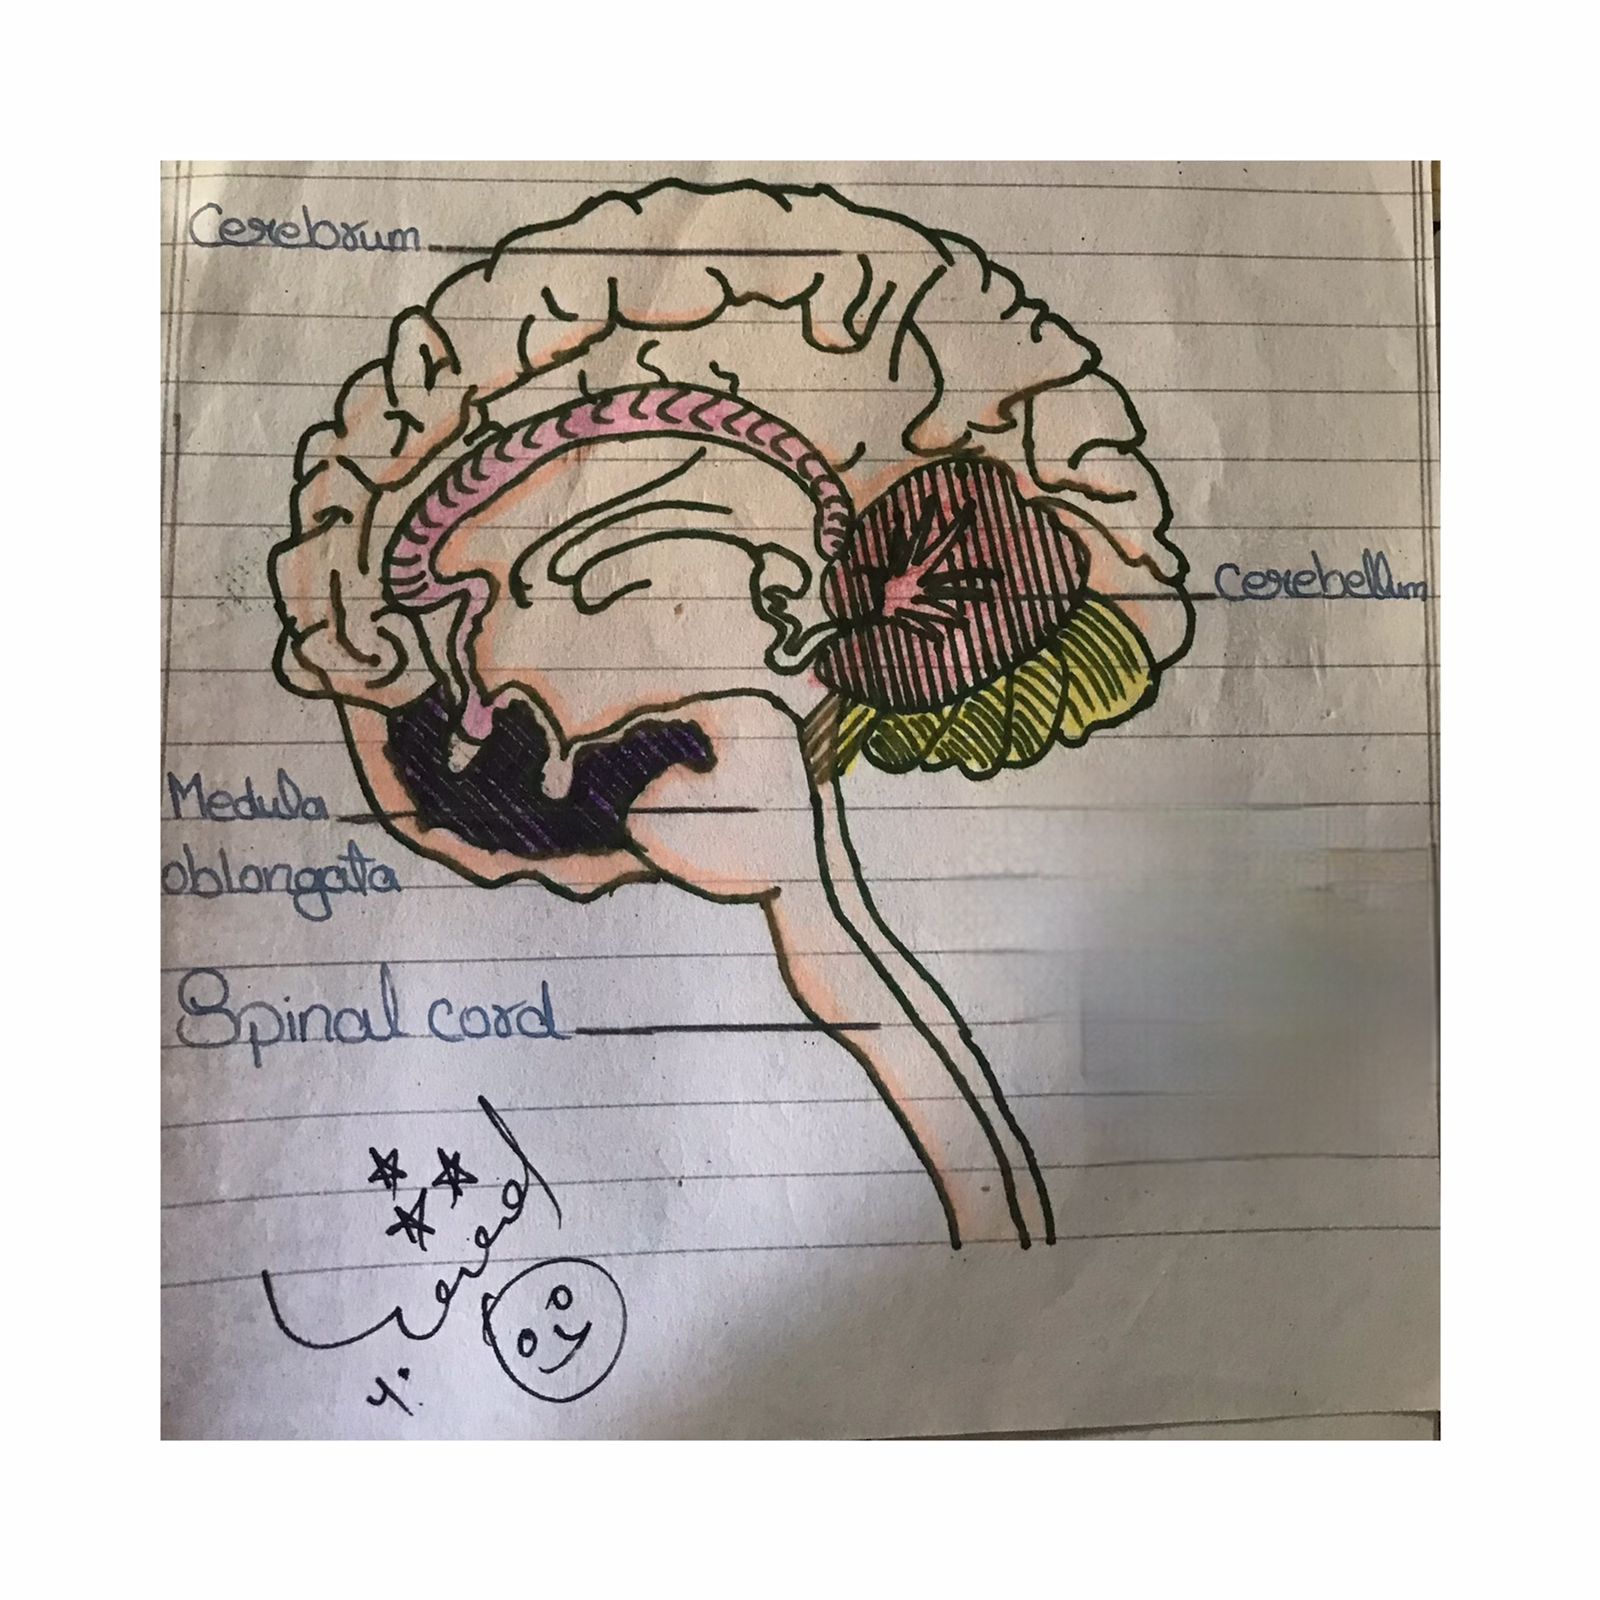 Cerebrum
Cerebellum
Medulla
oblongata
Spinal cord